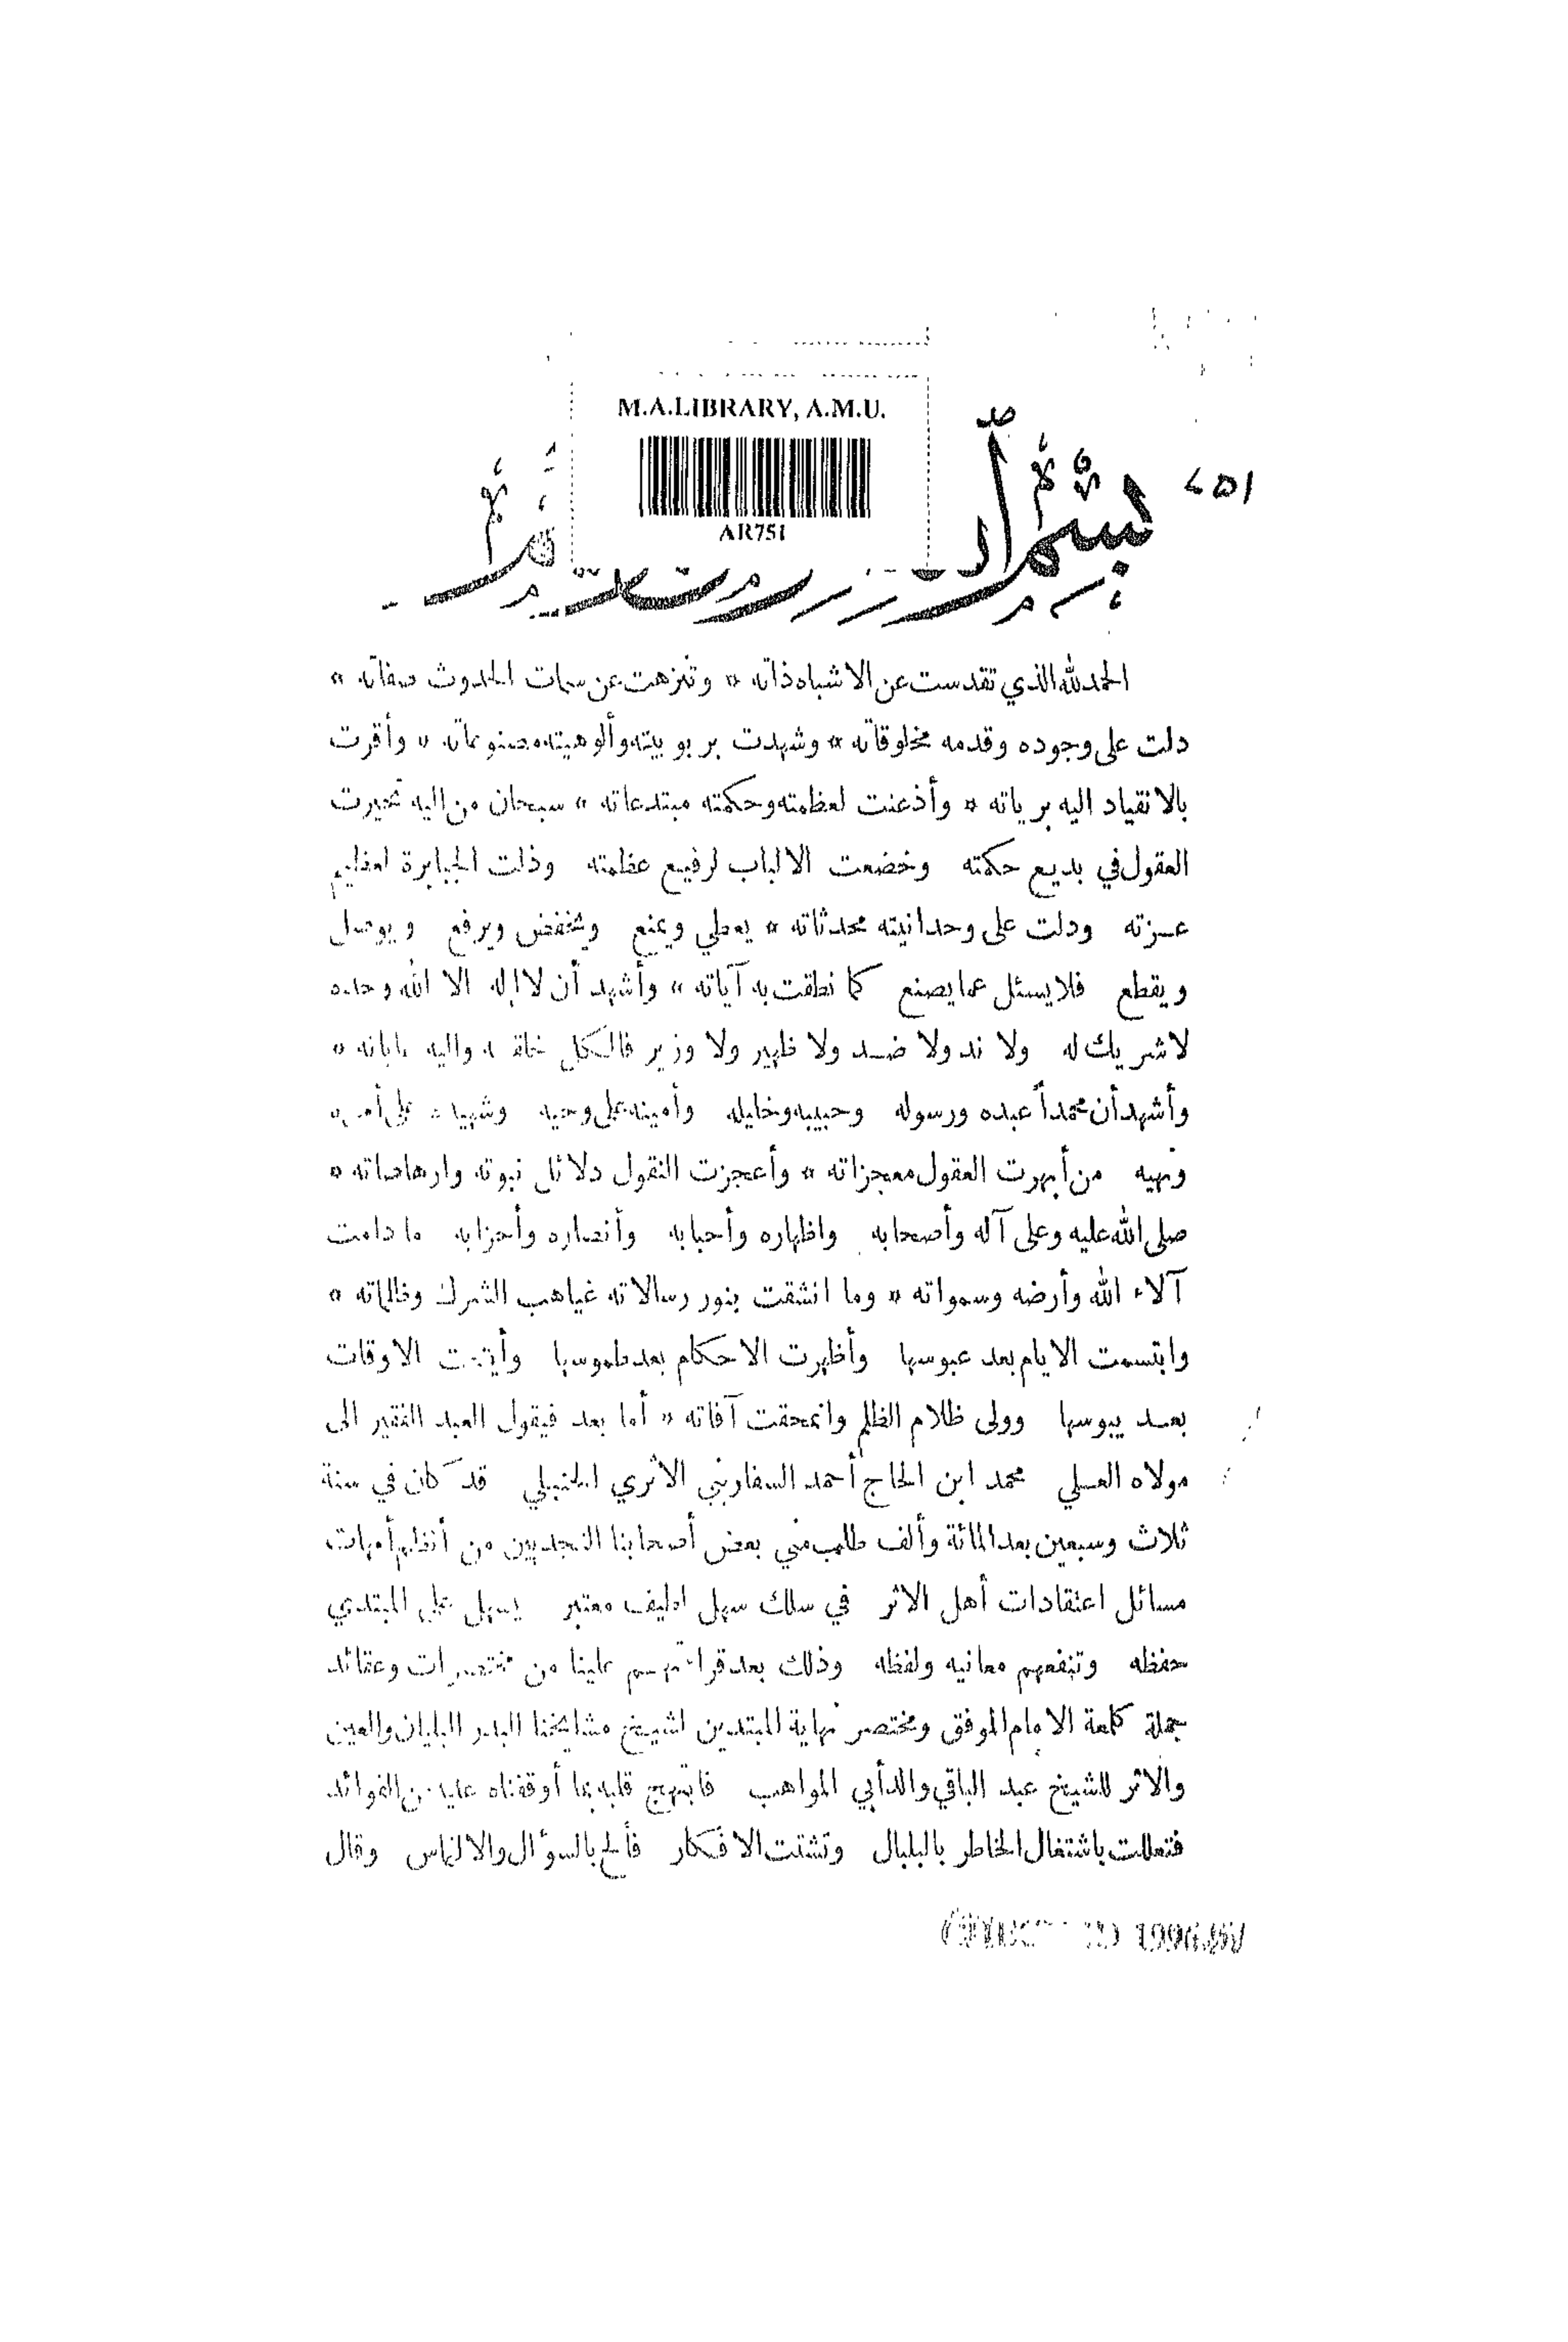 M.A.LIBRARY, A.M.U.
AR751
٧٥١
الحمد لله الذي تقدست عن الاشباه ذاته * وتنزهت عن سمات الحدوث صفاته *
دلت على وجوده وقدمه مخلوقاته * وشهدت بربوبيته وألوهيته مصنوعاته * وأقرت
بالانقياد اليه برياته * وأذعنت لعظمته وحكمته مبتدعاته * سبحان من اليه تحيرت
العقول في بديع حكمته وخضعت الالباب لرفيع عظمته وذلت الجبابرة لعظيم
عزته ودلت على وحدانيته محدثاته * يعطي ويمنع ويخفض ويرفع ويوصل
ويقطع فلا يسئل عما يصنع كما نطقت به آياته * وأشهد أن لا إله الا الله وحده
لا شريك له ولا ند ولا ضد ولا ظهير ولا وزير فالكل خلقه واليه *
وأشهد أن محمداً عبده ورسوله وحبيبه وخليله وأمينه على وحيه وشهيده على أمره
ونهيه من أبهرت العقول معجزاته * وأعجزت النقول دلائل نبوته وارهاصاته *
صلى الله عليه وعلى آله وأصحابه واظهاره وأحبابه وأنصاره وأحزابه ما دامت
آلاء الله وأرضه وسمواته * وما انشقت بنور رسالاته غياهب الشرك وظلماته *
وابتسمت الايام بعد عبوسها وأظهرت الاحكام بعد طموسها الاوقات
بعد يبوسها وولى ظلام الظلم وانمحقت آفاته * أما بعد فيقول العبد الفقير الى
مولاه العلي محمد ابن الحاج أحمد السفاريني الاثري الحنبلي قد كان في سنة
ثلاث وسبعين بعد المائة وألف طلب مني بعض أصحابنا النجديين من أنظم أمهات
مسائل اعتقادات أهل الاثر في سلك سهل لطيف معتبر يسهل على المبتدي
حفظه وتنفعهم معانيه ولفظه وذلك بعد قراءتهم علينا من مختصرات وعقائد
جملة كلمعة الامام الموفق ومختصر نهاية المبتدين لشيخ مشايخنا البدر البلباني والعين
والاثر للشيخ عبد الباقي والد أبي المواهب فابتهج قلبه بما أوقفناه عليه من الفوائد
فتعللت باشتغال الخاطر بالبلبال وتشتت الافكار فألح بالسؤال والالتماس وقال